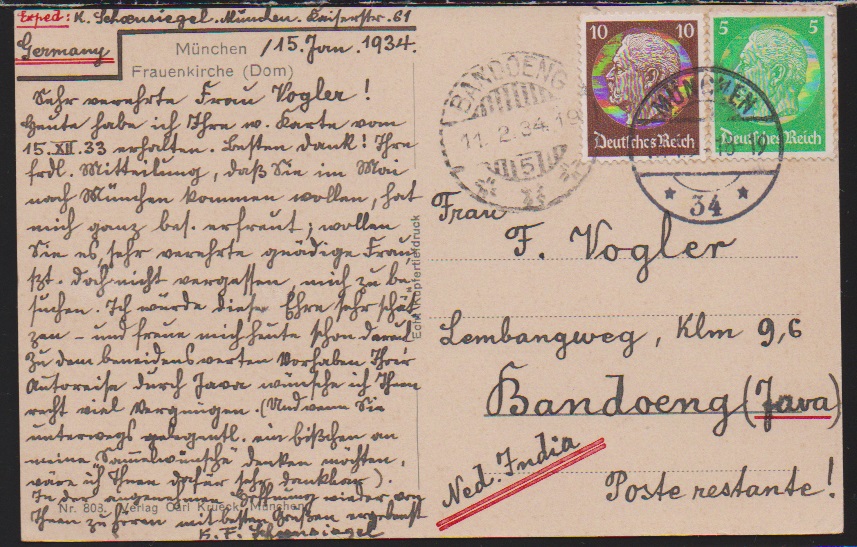 Exped: K. Schoensiegel. München. Kaiserstr. 61
Germany
München
Frauenkirche (Dom)
/15. Jan. 1934.
Sehr verehrte Frau Vogler!
Heute habe ich Ihre w. Karte vom
15.XII.33 erhalten. Besten Dank! Ihre
frdl. Mitteilung, daß Sie im Mai
nach München kommen wollen, hat
mich ganz bes. erfreut; wollen
Sie es, sehr verehrte gnädige Frau
jtzt. doch nicht vergessen, mich zu be
suchen. Ich würde diese Ehre sehr schät
zen – und freue mich heute schon darauf.
Zu dem beneidenswerten Vorhaben Ihrer
Autoreise durch Java wünsche ich Ihnen
recht viel Vergnügen. (Und wenn Sie
unterwegs gelegentl. ein bißchen an
meine Sammelwünsche denken möchten,
wäre ich Ihnen dafür sehr dankbar).
In der angenehmen Hoffnung wieder von
Ihnen zu hören mit besten Grüßen ergebenst
K. F. Schoensiegel
Nr. 803. Verlag Carl Krueck München
Echt Kupfertiefdruck
BANDOENG
11.2.34.19
5
10 10
Deutsches Reich
5 5
Deutsches Reich
MÜNCHEN
34
Frau
F. Vogler
Lembangweg, Klm 9,6
Bandoeng (Java)
Ned. India
Poste restante!